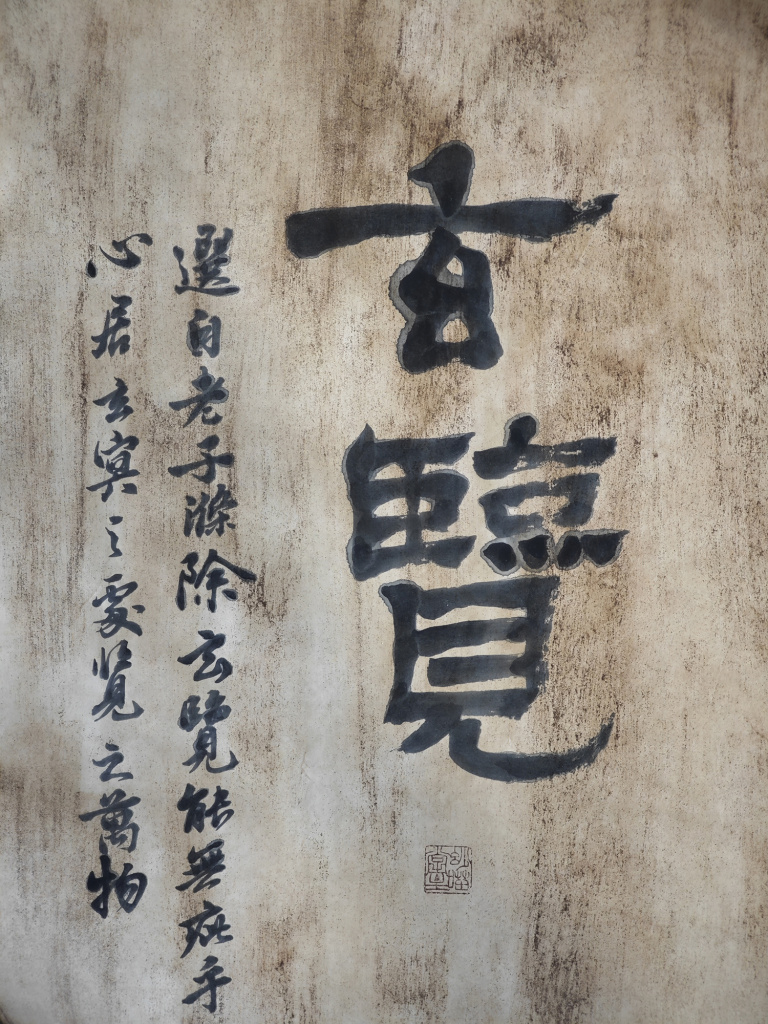 玄覽
選自老子滌除玄覽能無疵乎
心居玄冥之處覽之萬物